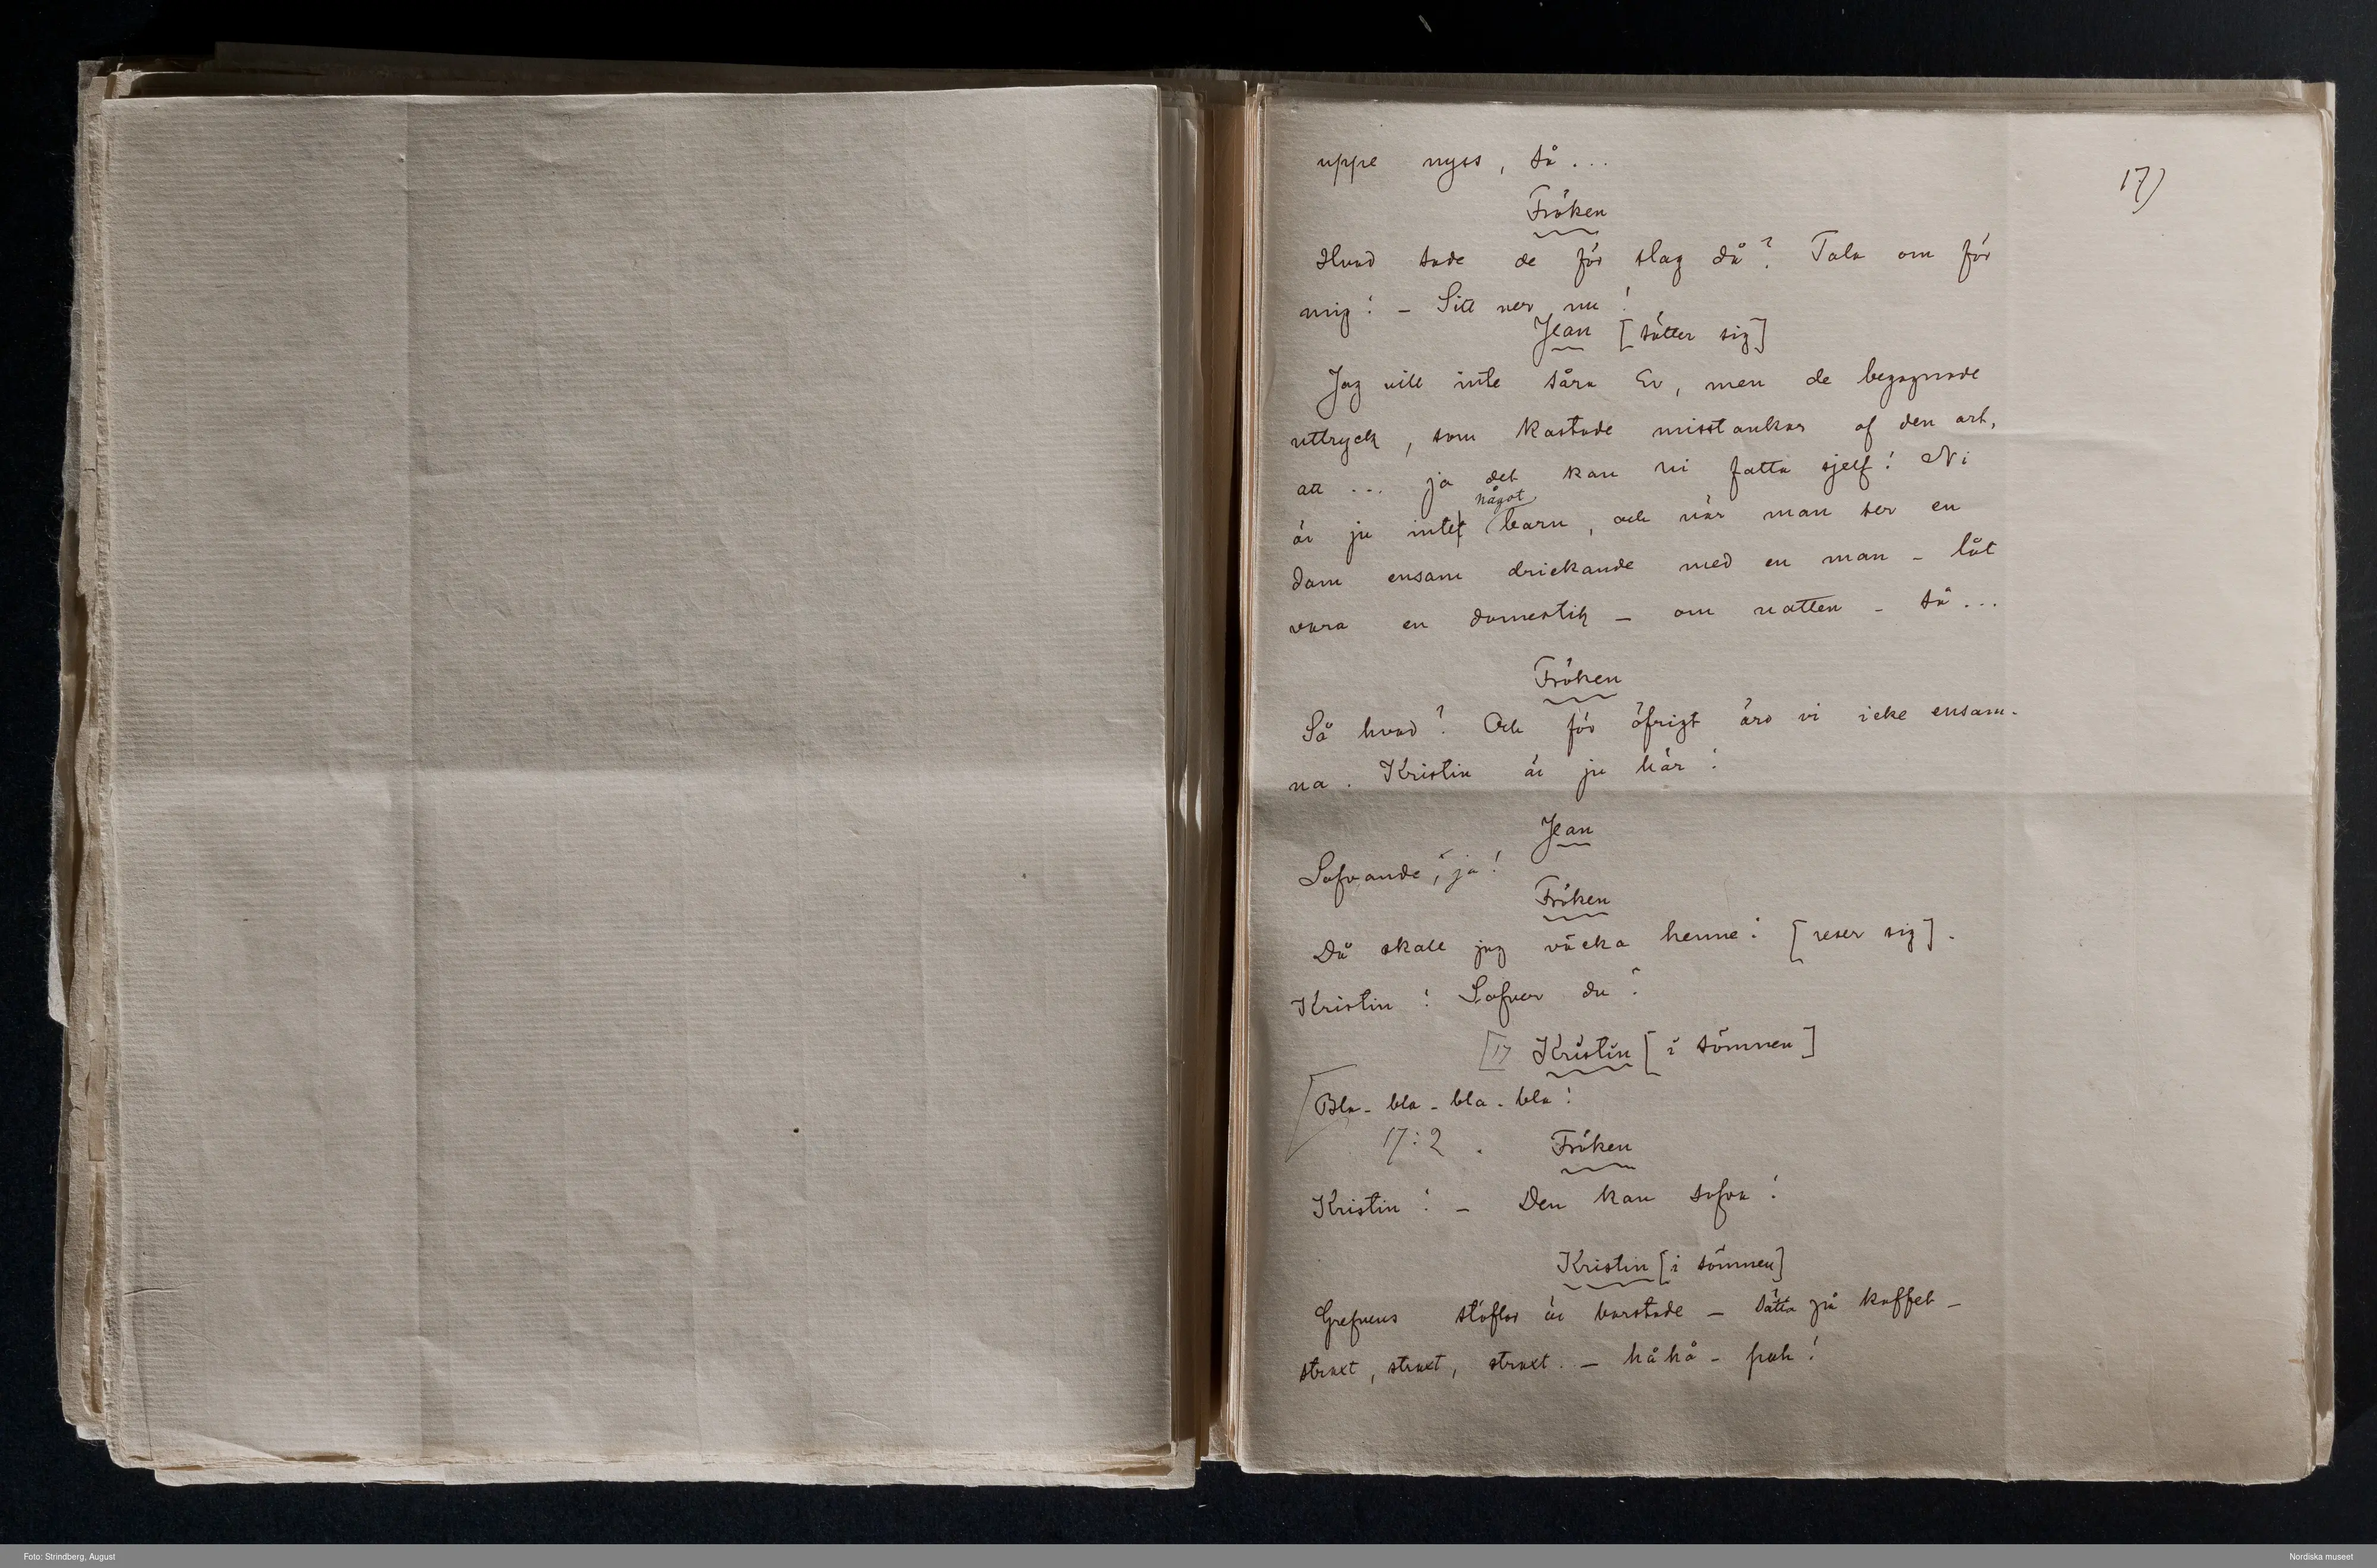 uppe nyss, så...
17)
Fröken
Hvad sade de för slag då? Tala om för
mig! – Sitt ner nu!
Jean [sätter sig]
Jag vill inte såra Er, men de begagnade
uttryck, som kastade misstankar af den art,
att ... ja det kan ni fatta sjelf! Ni
något
är ju inte barn, och när man ser en
dam ensam drickande med en man – låt
vara en domestik – om natten – så...
Fröken
Så hvad? Och för öfrigt äro vi icke ensam-
na. Kristin är ju här!
Jean
Sofvande, ja!
Fröken
Då skall jag väcka henne! [reser sig].
Kristin! Sofver du?
[17 Kristin [i sömnen]
[Bla- bla - bla - bla!
17:2. Fröken
Kristin! – Den kan sofva!
Kristin [i sömnen]
Grefvens stöflar är borstade – sätta på kaffet –
straxt, straxt, straxt. – hå hå – puh!
Foto: Strindberg, August
Nordiska museet